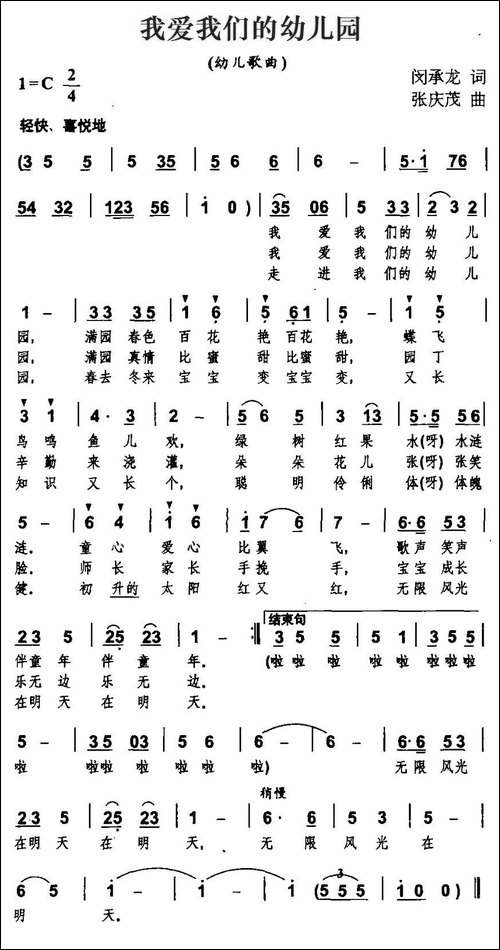 我爱我们的幼儿园
(幼儿歌曲)
1=C 2/4
闵承龙 词
张庆茂 曲
轻快、喜悦地
(3 5 5 | 5 35 | 5 6 6 | 6 - | 5·1 76 |
54 32 | 123 56 | 1 0 ) | 35 06 | 5 33 | 2 3 2 |
我 爱 我 们的 幼 儿
我 爱 我 们的 幼 儿
走 进 我 们的 幼 儿
1 - | 33 35 | 1 6 | 5 61 | 5 - | 1 5 |
园, 满园 春色 百 花 艳 百花 艳, 蝶 飞
园, 满园 真情 比 蜜 甜 比蜜 甜, 园 丁
园, 春去 冬来 宝 宝 变 宝宝 变, 又 长
3 1 | 4· 3 | 2 - | 5 6 6 | 3 13 | 5·5 56 |
鸟 鸣 鱼 儿 欢, 绿 树 红 果 水(呀)水 涟
辛 勤 来 浇 灌, 朵 朵 花 儿 张(呀)张 笑
知 识 又 长 个, 聪 明 伶 俐 体(呀)体 魄
5 - | 6 4 | 1 6 | 1 7 6 | 7 - | 6·6 53 |
涟. 童 心 爱 心 比 翼 飞, 歌声 笑声
脸. 师 长 家 长 手 挽 手, 宝宝 成长
健. 初 升的 太 阳 红 又 红, 无限 风光
结束句
23 5 | 25 23 | 1 - :‖ 3 5 5 | 5 1 | 3 5 5 |
伴童 年 伴 童 年. (啦 啦 啦 啦 啦 啦啦 啦
乐无 边 乐 无 边.
在明 天 在 明 天.
5 - | 35 03 | 5 1 5 | 6 - | 6 - | 6·6 53 |
啦 啦啦 啦 啦 啦 啦 啦) 无限 风光
稍慢
23 5 | 25 23 | 1 - | 6· 6 | 5 3 | 2 - |
在明 天 在 明 天, 无 限 风 光 在
6 5 | 1 - | 1 - | 1 - | 1 (555 | 1 0 0) ‖
明 天.
3